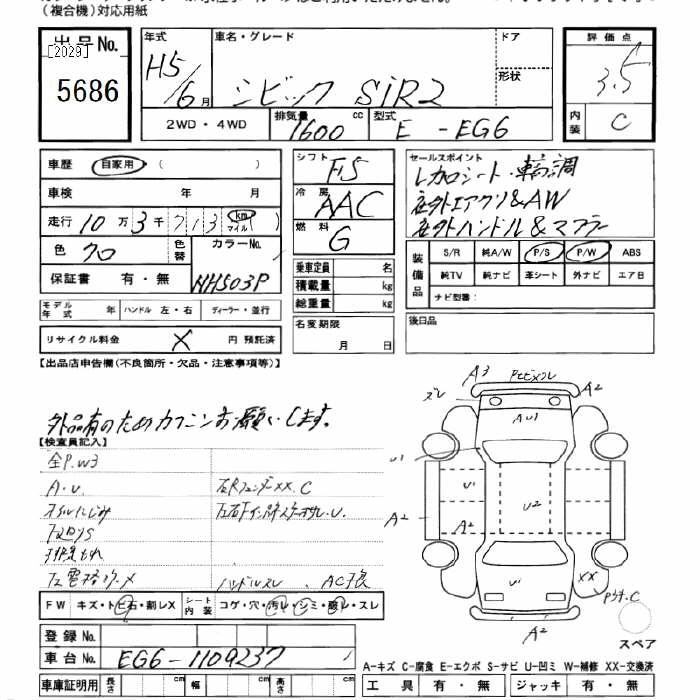 (複合機)対応用紙
出品No.
[2029]
5686
年式 H5/6月
車名・グレード シビック SiR2
ドア
形状
2WD・4WD
排気量 1600 cc
型式 E-EG6
評価点 3.5
内装 C
車歴 自家用 ( )
車検 年 月
走行 10万3千713 km マイル
色 クロ
色替
カラーNo. NH503P
保証書 有・無
シフト F5
冷房 AAC
燃料 G
乗車定員 名
積載量 kg
総重量 kg
セールスポイント
レカロシート・車高調
社外エアクリ&AW
社外ハンドル&マフラー
装備品
S/R 純A/W P/S P/W ABS
純TV 純ナビ 革シート 外ナビ エア日
ナビ型番:
モデル年式 年 ハンドル 左・右 ディーラー・並行
リサイクル料金 X 円 預託済
名変期限 月 日
後日品
【出品店申告欄(不良箇所・欠品・注意事項等)】
【検査員記入】
全P.W3
A・U
オイルにじみ
左電格ダメ
ハンドルスレ AC不良
FW キズ・トビ石・割レX
シート内装 コゲ・穴・汚レ・シミ・破レ・スレ
登録No.
車台No. EG6-1109237
車庫証明用 長さ cm 幅 cm 高さ cm
A3
A2
ズレ
AU1
U1
U1
U2
A2
A2
U1
XX
A2
スペア
A-キズ C-腐食 E-エクボ S-サビ U-凹ミ W-補修 XX-交換済
工具 有・無 ジャッキ 有・無